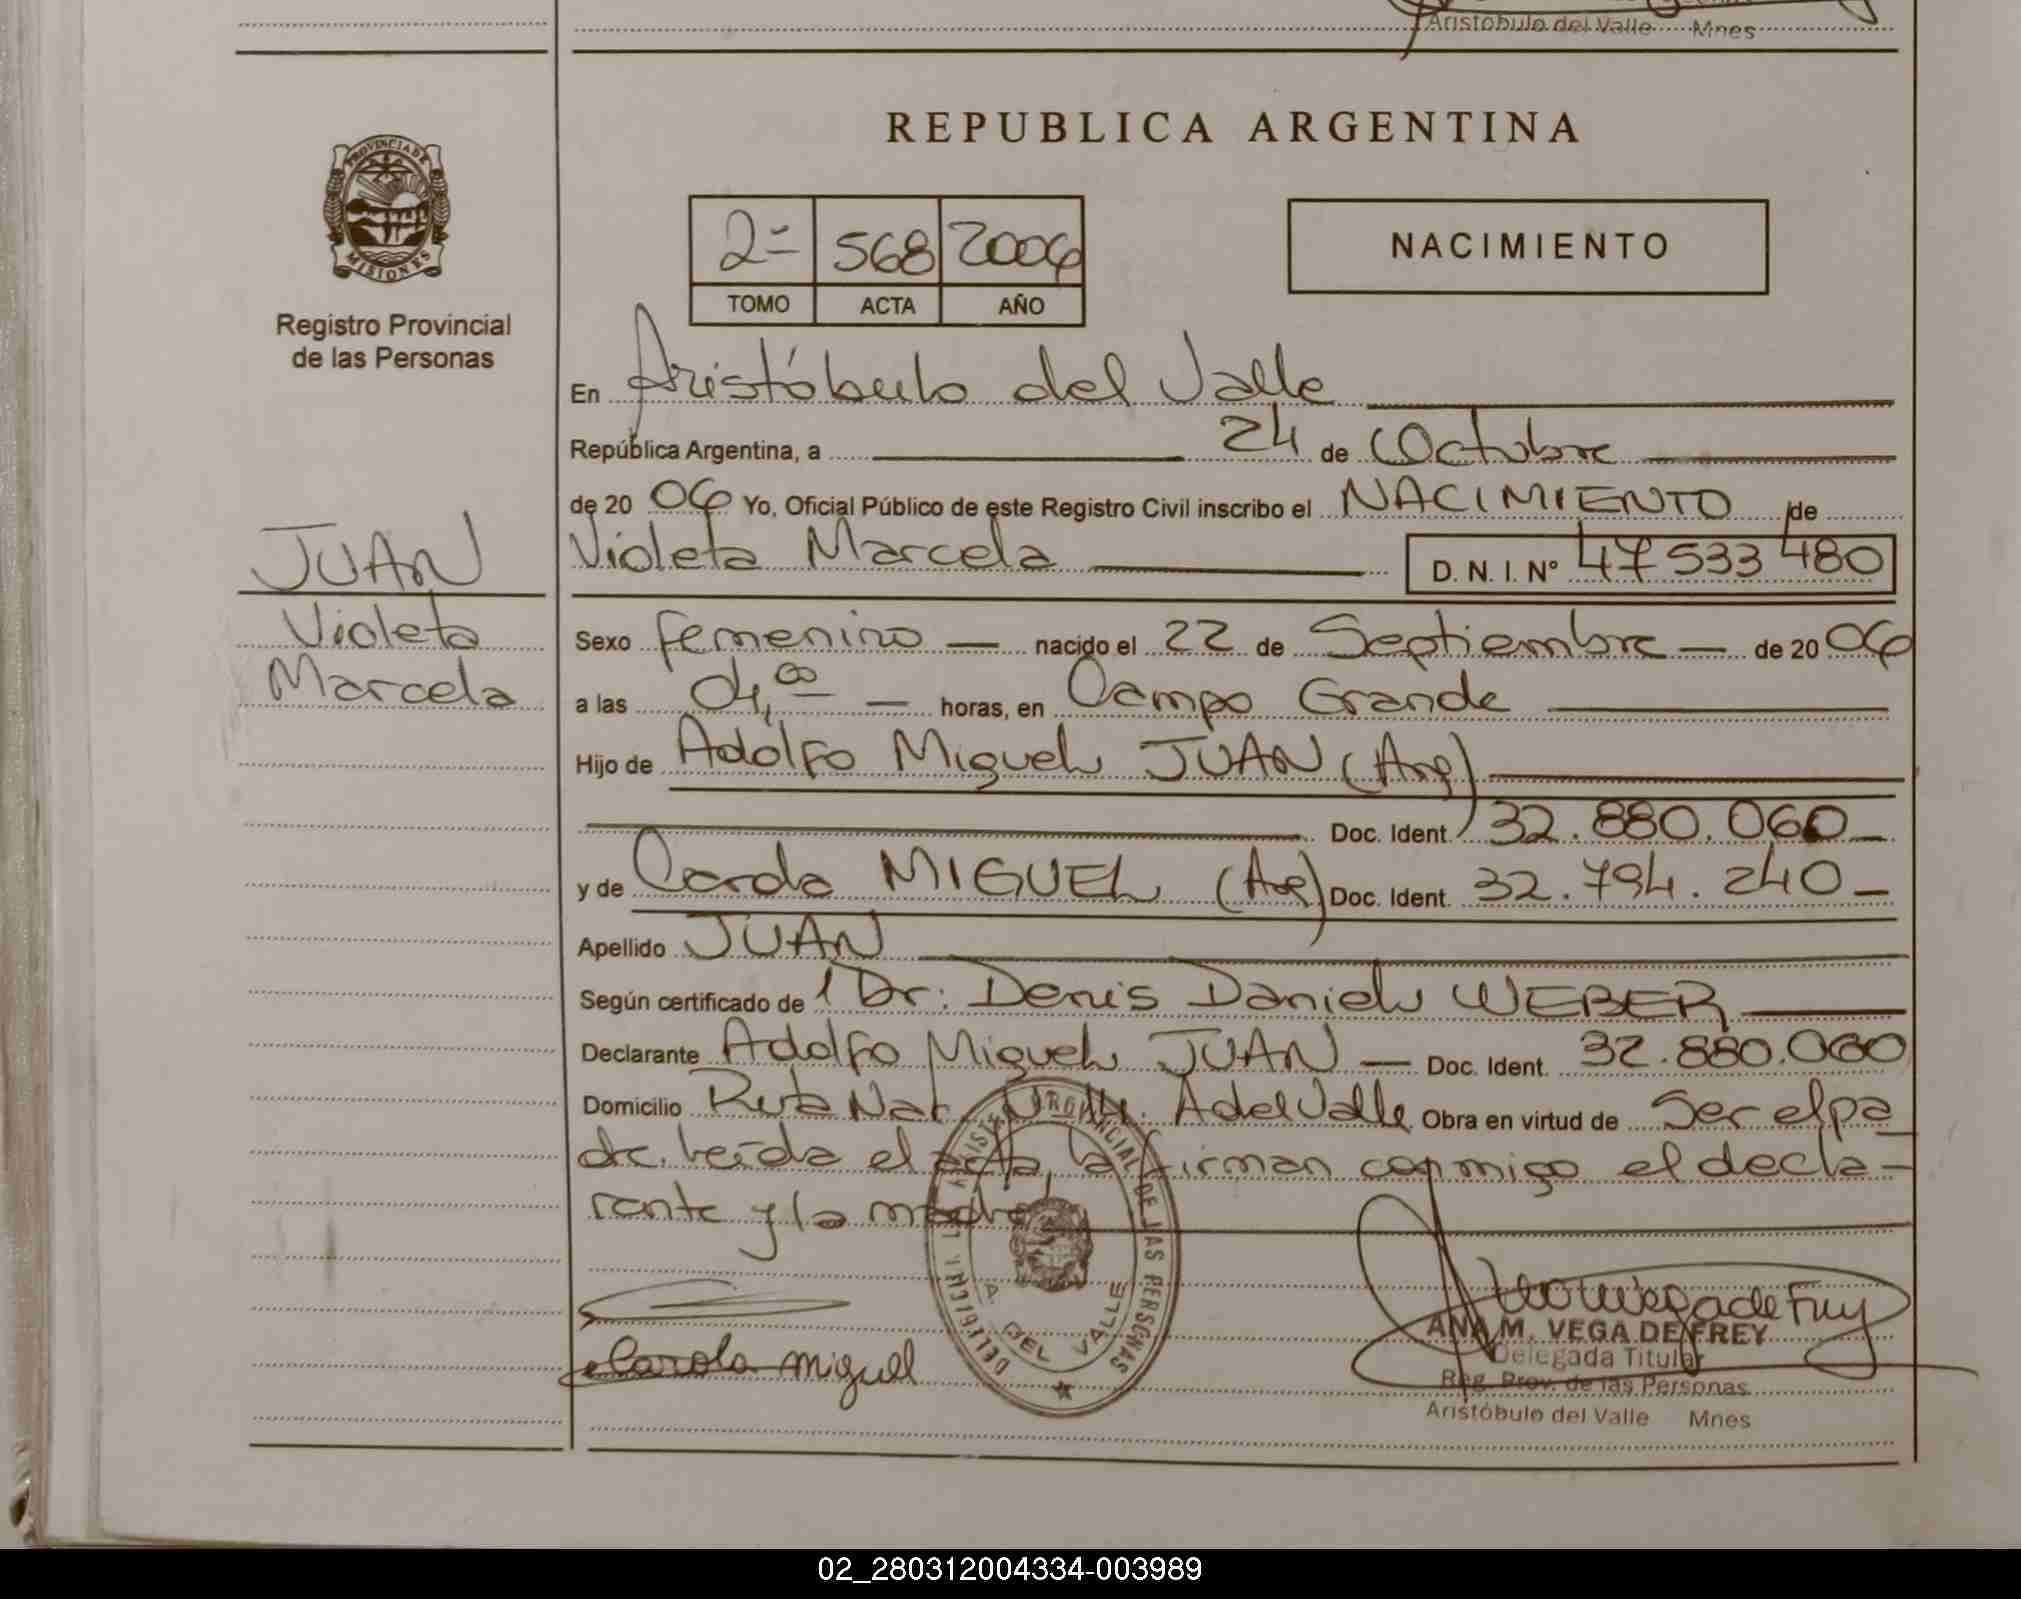 Aristóbulo del Valle Mnes
PROVINCIA DE
MISIONES
Registro Provincial
de las Personas
REPUBLICA ARGENTINA
2= 568 2006
TOMO ACTA AÑO
NACIMIENTO
En Aristóbulo del Valle
República Argentina, a 24 de Octubre
de 20 06 Yo, Oficial Público de este Registro Civil inscribo el NACIMIENTO de
Violeta Marcela D. N. I. N° 47533480
JUAN
Violeta
Marcela
Sexo femenino nacido el 22 de Septiembre de 20 06
a las 04,00 horas, en Campo Grande
Hijo de Adolfo Miguel JUAN (Arg)
Doc. Ident. 32.880.060
y de Carola MIGUEL (Arg) Doc. Ident. 32.794.240
Apellido JUAN
Según certificado de Dr. Denis Daniel WEBER
Declarante Adolfo Miguel JUAN Doc. Ident. 32.880.060
Domicilio Ruta Nac. N° 14. A del Valle Obra en virtud de Ser el pa
dre. Leída el acta, la firman conmigo el decla-
rante y la madre
DE LAS PERSONAS
A. DEL VALLE
Carola Miguel
ANA M. VEGA DE FREY
Delegada Titular
Reg. Prov. de las Personas
Aristóbulo del Valle Mnes
02_280312004334-003989